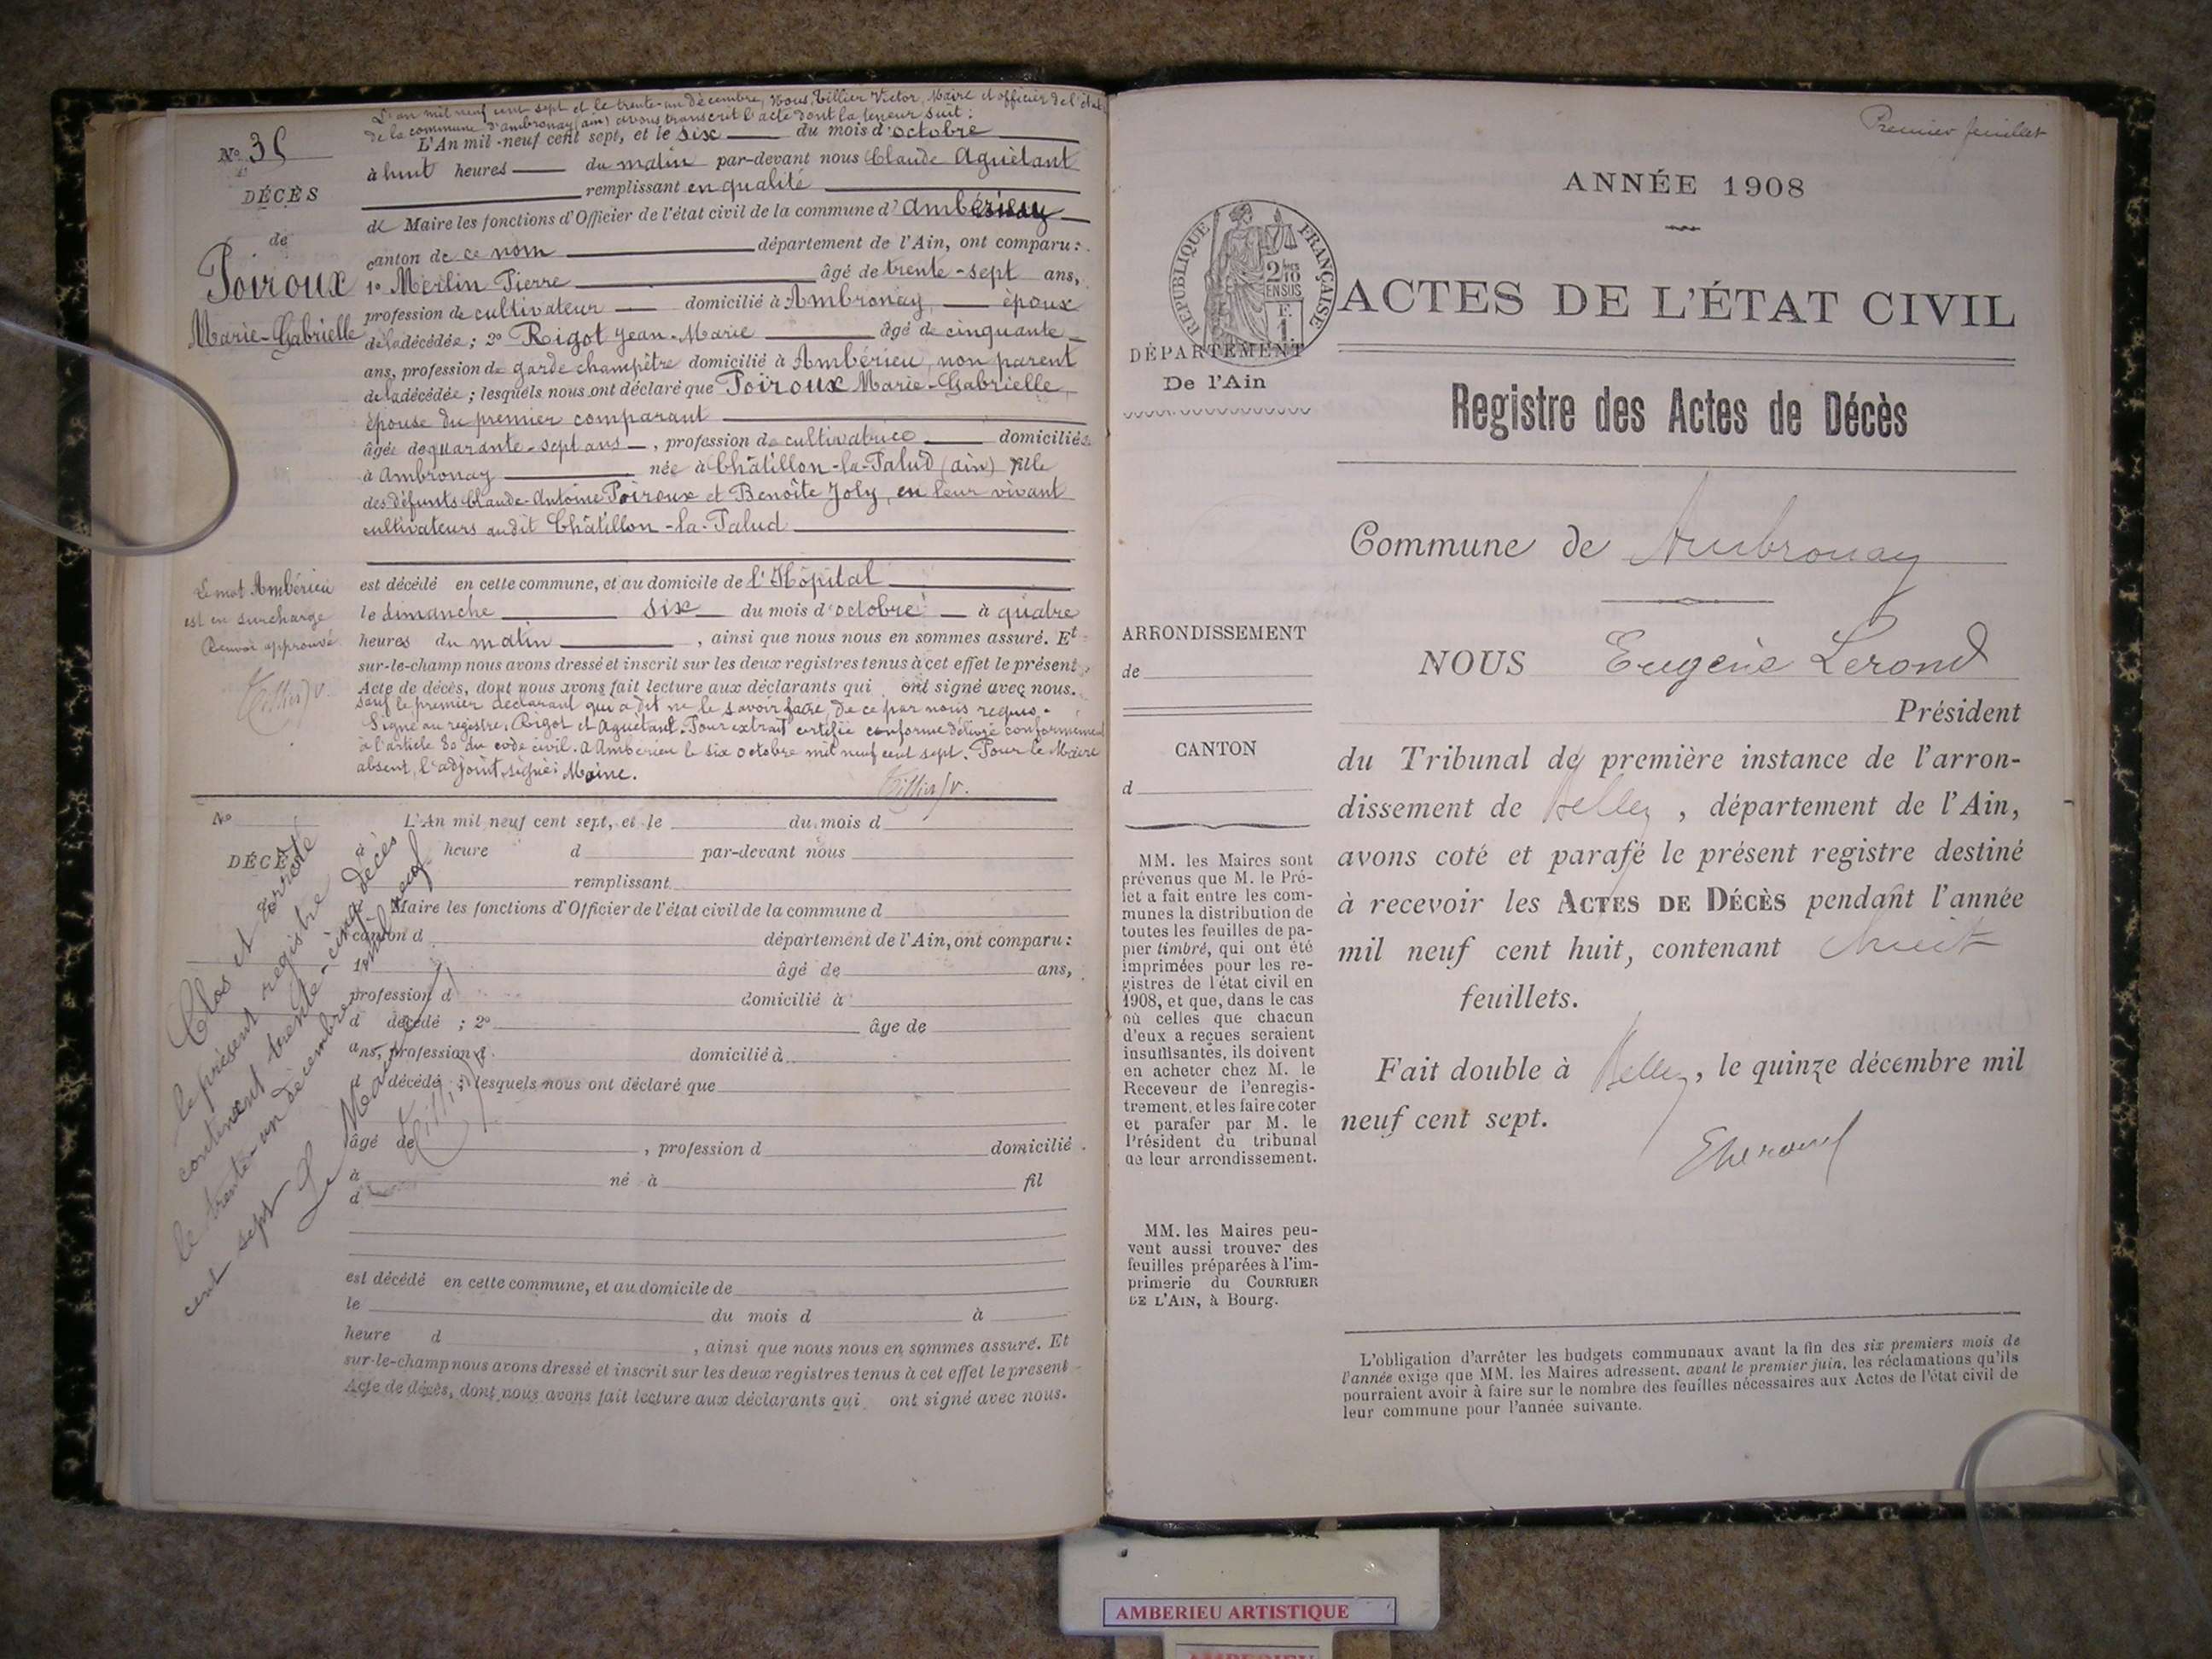 L'an mil neuf cent sept et le trente-un décembre, Nous, Tillier Victor, Maire et officier de l'état
de la commune d'Ambronay (ain) avons transcrit l'acte dont la teneur suit :
N° 35
L'An mil-neuf cent sept, et le six du mois d'octobre
à huit heures du matin par-devant nous Claude Aguétant
DÉCÈS
remplissant en qualité
de Maire les fonctions d'Officier de l'état civil de la commune d'Ambérieu
de
canton de ce nom département de l'Ain, ont comparu :
Poiroux
1° Merlin Pierre âgé de trente-sept ans,
profession de cultivateur domicilié à Ambronay, époux
Marie-Gabrielle
de la décédée ; 2° Rigot Jean-Marie âgé de cinquante
ans, profession de garde champêtre domicilié à Ambérieu, non parent
de la décédée ; lesquels nous ont déclaré que Poiroux Marie-Gabrielle,
épouse du premier comparant
âgée de quarante-sept ans, profession de cultivatrice domiciliée
à Ambronay née à Châtillon-la-Palud (ain) fille
des défunts Claude-Antoine Poiroux et Benoîte Joly, en leur vivant
cultivateurs audit Châtillon-la-Palud
Le mot Ambérieu
est en surcharge
Renvoi approuvé
Tillier V.
est décédé en cette commune, et au domicile de l'Hôpital
le dimanche six du mois d'octobre à quatre
heures du matin, ainsi que nous nous en sommes assuré. Et
sur-le-champ nous avons dressé et inscrit sur les deux registres tenus à cet effet le présent
Acte de décès, dont nous avons fait lecture aux déclarants qui ont signé avec nous.
sauf le premier déclarant qui a dit ne le savoir faire, de ce par nous requis.
Signé au registre, Rigot et Aguétant. Pour extrait certifié conforme délivré conformément
à l'article 80 du code civil. a Ambérieu le six octobre mil neuf cent sept. Pour le Maire
absent, l'adjoint, signé : Moine.
Tillier V.
N°
L'An mil neuf cent sept, et le du mois d
DÉCÈS
à heure d par-devant nous
remplissant
Maire les fonctions d'Officier de l'état civil de la commune d
canton d département de l'Ain, ont comparu :
1° âgé de ans,
profession d domicilié à
d décédé ; 2° âgé de
ans, profession d domicilié à
d décédé ; lesquels nous ont déclaré que
âgé de , profession d domicilié
à né à fil
d
est décédé en cette commune, et au domicile de
le du mois d à
heure d , ainsi que nous nous en sommes assuré. Et
sur-le-champ nous avons dressé et inscrit sur les deux registres tenus à cet effet le présent
Acte de décès, dont nous avons fait lecture aux déclarants qui ont signé avec nous.
Clos et arrêté
le présent registre
contenant trente-cinq décès
le trente-un décembre mil neuf
cent sept
Le Maire
Tillier V.
Premier feuillet
ANNÉE 1908
RÉPUBLIQUE FRANÇAISE
2/10 EN SUS
F.
1.
ACTES DE L'ÉTAT CIVIL
DÉPARTEMENT
De l'Ain
Registre des Actes de Décès
Commune de Ambronay
ARRONDISSEMENT
de
CANTON
d
NOUS Eugène Lerond
Président
du Tribunal de première instance de l'arron-
dissement de Belley, département de l'Ain,
avons coté et parafé le présent registre destiné
à recevoir les ACTES DE DÉCÈS pendant l'année
mil neuf cent huit, contenant huit
feuillets.
Fait double à Belley, le quinze décembre mil
neuf cent sept.
MM. les Maires sont
prévenus que M. le Pré-
fet a fait entre les com-
munes la distribution de
toutes les feuilles de pa-
pier timbré, qui ont été
imprimées pour les re-
gistres de l'état civil en
1908, et que, dans le cas
où celles que chacun
d'eux a reçues seraient
insuffisantes, ils doivent
en acheter chez M. le
Receveur de l'enregis-
trement, et les faire coter
et parafer par M. le
Président du tribunal
de leur arrondissement.
MM. les Maires peu-
vent aussi trouver des
feuilles préparées à l'im-
primerie du COURRIER
DE L'AIN, à Bourg.
L'obligation d'arrêter les budgets communaux avant la fin des six premiers mois de
l'année exige que MM. les Maires adressent, avant le premier juin, les réclamations qu'ils
pourraient avoir à faire sur le nombre des feuilles nécessaires aux Actes de l'état civil de
leur commune pour l'année suivante.
AMBERIEU ARTISTIQUE
AMBERIEU